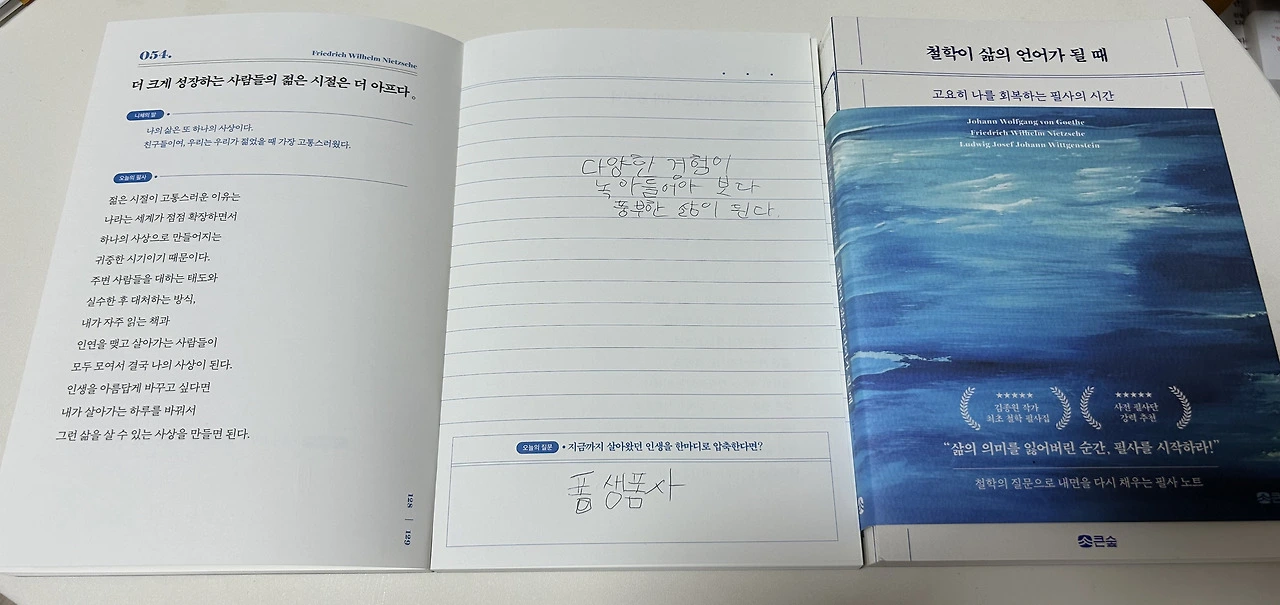 054.
Friedrich Wilhelm Nietzsche
더 크게 성장하는 사람들의 젊은 시절은 더 아프다。
니체의 말
나의 삶은 또 하나의 사상이다.
친구들이여, 우리는 우리가 젊었을 때 가장 고통스러웠다.
오늘의 필사
젊은 시절이 고통스러운 이유는
나라는 세계가 점점 확장하면서
하나의 사상으로 만들어지는
귀중한 시기이기 때문이다.
주변 사람들을 대하는 태도와
실수한 후 대처하는 방식,
내가 자주 읽는 책과
인연을 맺고 살아가는 사람들이
모두 모여서 결국 나의 사상이 된다.
인생을 아름답게 바꾸고 싶다면
내가 살아가는 하루를 바꿔서
그런 삶을 살 수 있는 사상을 만들면 된다.
128 | 129
다양한 경험이
녹아들어야 보다
풍부한 삶이 된다.
오늘의 질문 • 지금까지 살아왔던 인생을 한마디로 압축한다면?
폼생폼사
철학이 삶의 언어가 될 때
고요히 나를 회복하는 필사의 시간
Johann Wolfgang von Goethe
Friedrich Wilhelm Nietzsche
Ludwig Josef Johann Wittgenstein
★★★★★
김종원 작가
최초 철학 필사집
★★★★★
사전 필사단
강력 추천
“삶의 의미를 잃어버린 순간, 필사를 시작하라!”
철학의 질문으로 내면을 다시 채우는 필사 노트
큰숲